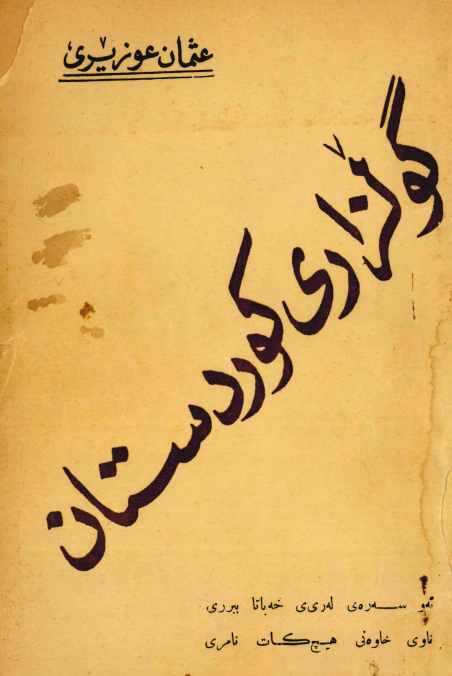 عثمان عوزێری
گوڵزاری کوردستان
ئەو ســەرەی لەڕێی خەباتا ببرری
ناوی خاوەنی هیــچ کــات نامری